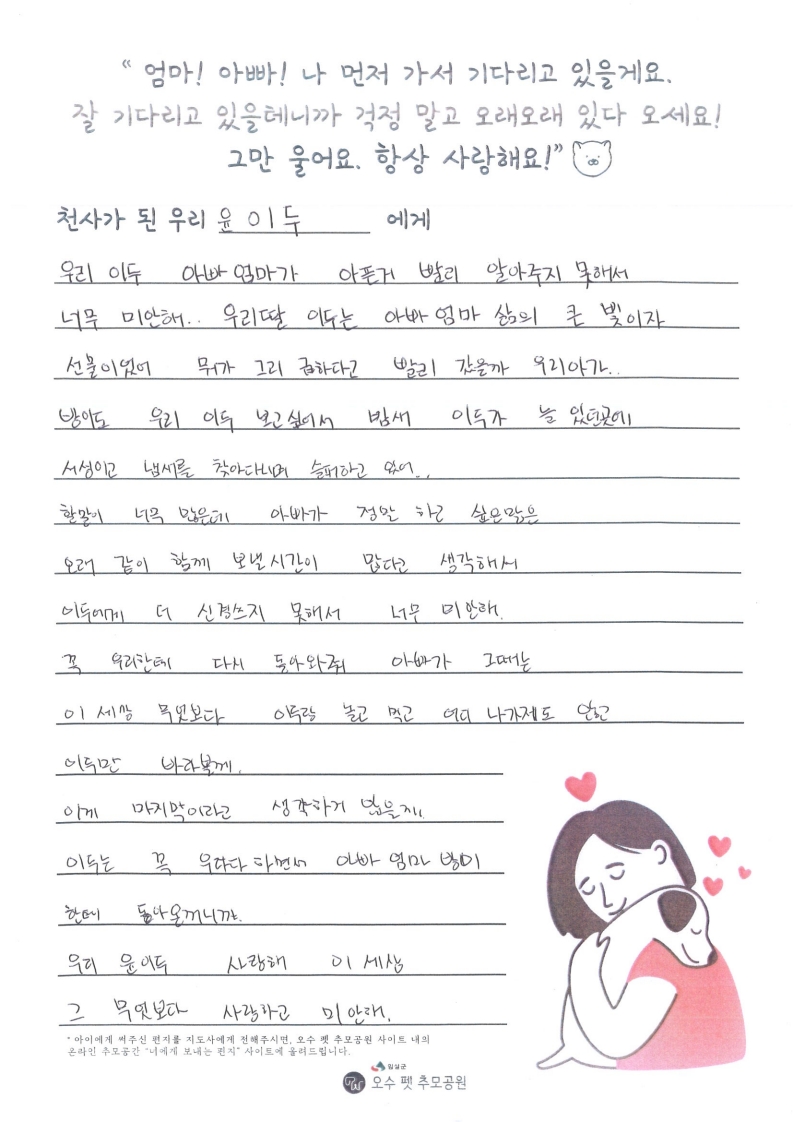 “ 엄마! 아빠! 나 먼저 가서 기다리고 있을게요.
잘 기다리고 있을테니까 걱정 말고 오래오래 있다 오세요!
그만 울어요. 항상 사랑해요!”
천사가 된 우리 윤이두 에게
우리 이두 아빠 엄마가 아픈거 빨리 알아주지 못해서
너무 미안해.. 우리딸 이두는 아빠 엄마 삶의 큰 빛이자
선물이었어 뭐가 그리 급하다고 빨리 갔을까 우리아가..
방이도 우리 이두 보고싶어서 밤새 이두가 늘 있던곳에
서성이고 냄새를 찾아다니며 슬퍼하고 있어..
할말이 너무 많은데 아빠가 정말 하고 싶은말은
오래 같이 함께 보낼시간이 많다고 생각해서
이두에게 더 신경쓰지 못해서 너무 미안해.
꼭 우리한테 다시 돌아와줘 아빠가 그때는
이 세상 무엇보다 이두랑 놀고 먹고 어디 나가지도 않고
이두만 바라볼께.
이게 마지막이라고 생각하지 않을게.
이두는 꼭 우다다 하면서 아빠 엄마 방이
한테 돌아올꺼니까.
우리 윤이두 사랑해 이 세상
그 무엇보다 사랑하고 미안해.
* 아이에게 써주신 편지를 지도사에게 전해주시면, 오수 펫 추모공원 사이트 내의
온라인 추모공간 “너에게 보내는 편지” 사이트에 올려드립니다.
임실군
오수 펫 추모공원